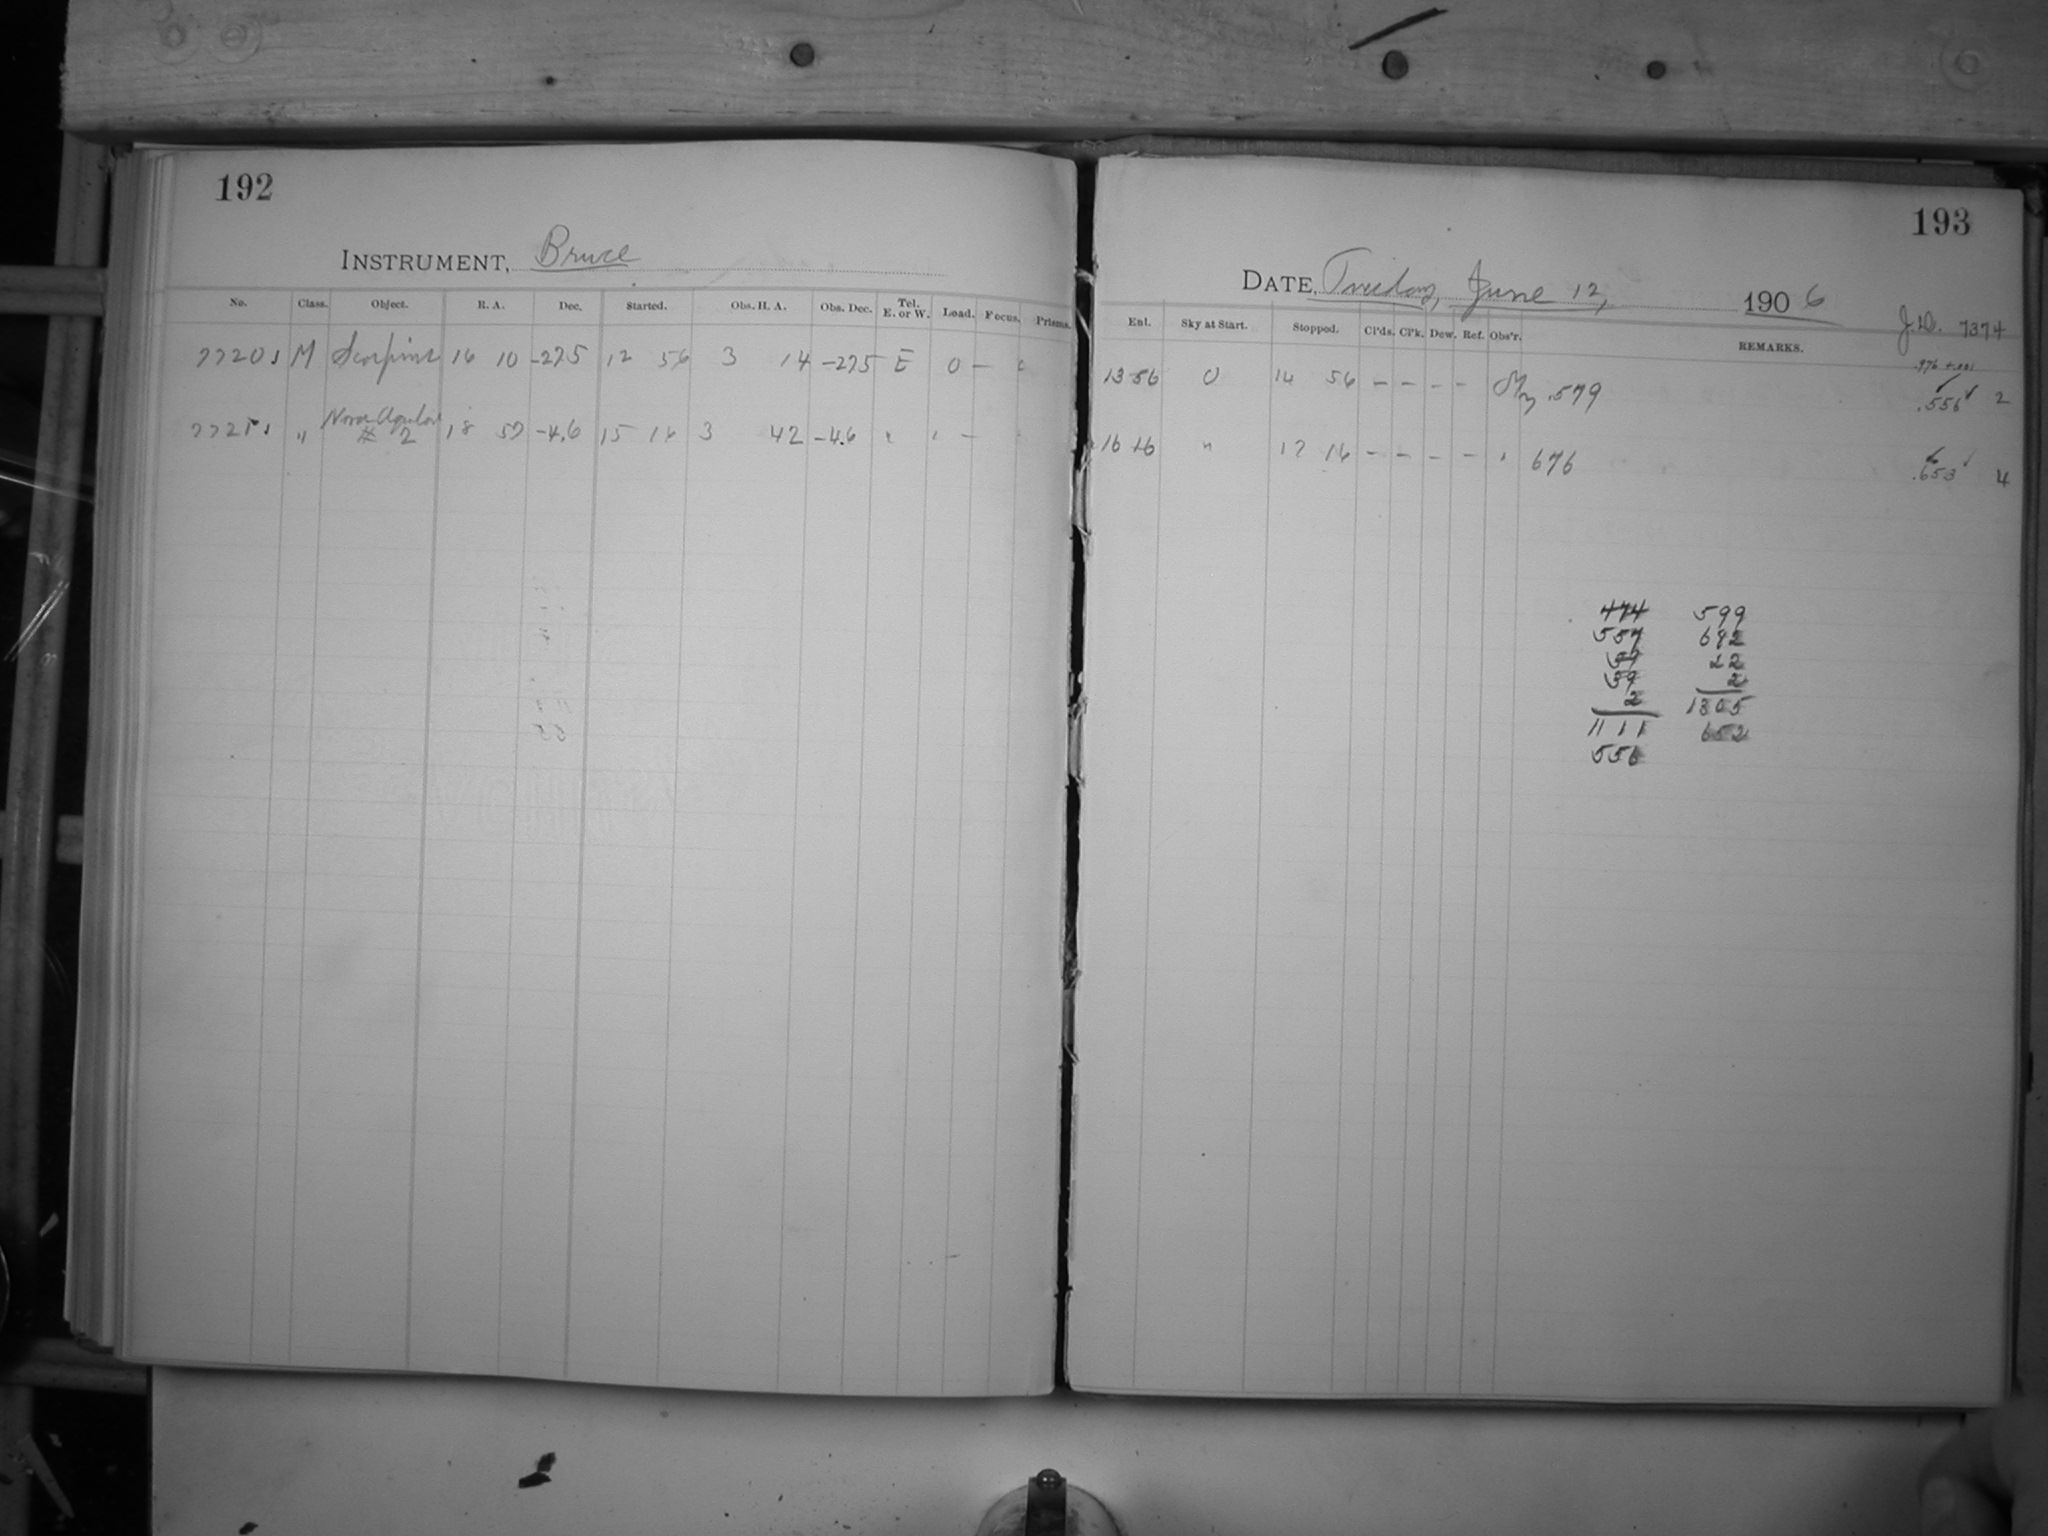 192
INSTRUMENT, Bruce
No. Class. Object. R. A. Dec. Started. Obs. H. A. Obs. Dec. Tel. E. or W. Load. Focus. Prisms.
7720 M Scorpius 16 10 -27.5 12 56 3 14 -27.5 E 0 -
772 " Nova Aquilae # 2 18 57 -4.6 15 16 3 42 -4.6 " -
193
DATE, Tuesday, June 12, 1906
J.D. 7374
Enl. Sky at Start. Stopped. Cl'ds. Cl'k. Dew. Ref. Obs'r. REMARKS.
.976 +.001
13 56 0 14 56 - - - - .579 .556 2
16 16 " 17 16 - - - - 676 .653 4
474 599
557 682
22
59 2
2 1305
1111 652
556